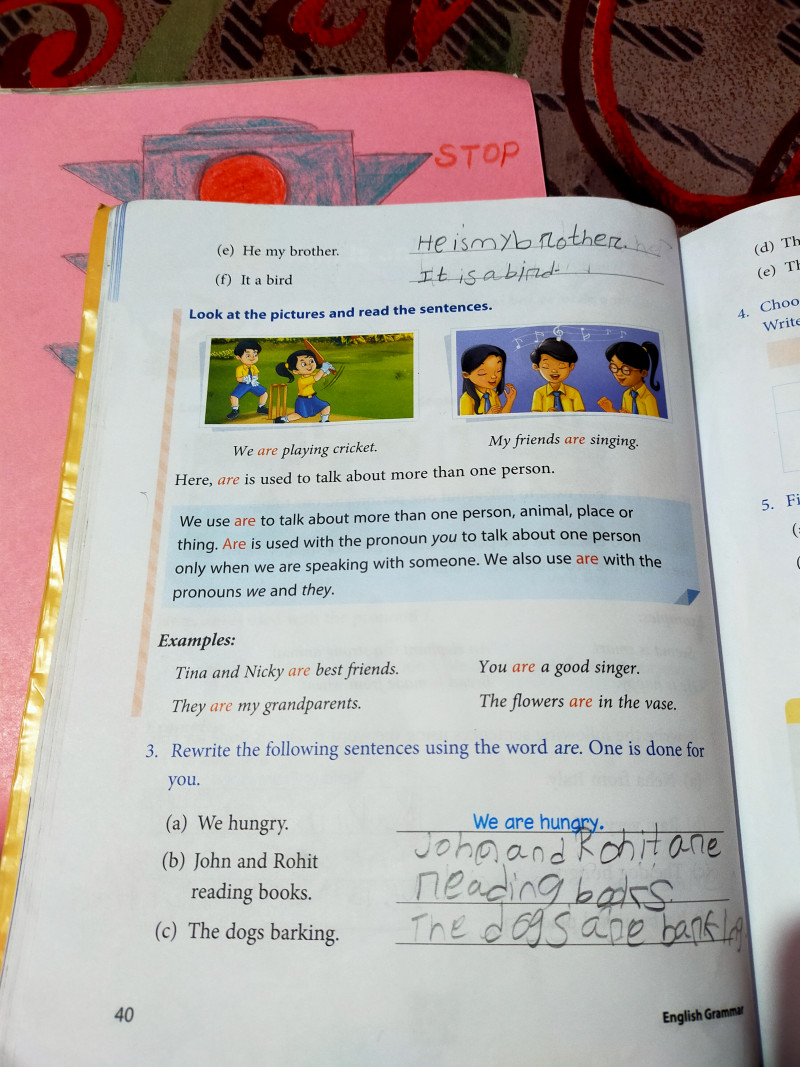 STOP
(e) He my brother. He is my brother.
(f) It a bird It is a bird.
Look at the pictures and read the sentences.
We are playing cricket. My friends are singing.
Here, are is used to talk about more than one person.
We use are to talk about more than one person, animal, place or
thing. Are is used with the pronoun you to talk about one person
only when we are speaking with someone. We also use are with the
pronouns we and they.
Examples:
Tina and Nicky are best friends. You are a good singer.
They are my grandparents. The flowers are in the vase.
3. Rewrite the following sentences using the word are. One is done for
you.
(a) We hungry. We are hungry.
(b) John and Rohit John and Rohit are
reading books. reading books.
(c) The dogs barking. The dogs are barking
40 English Grammar
(d) Th
(e) Th
4. Choo
Write
5. Fi